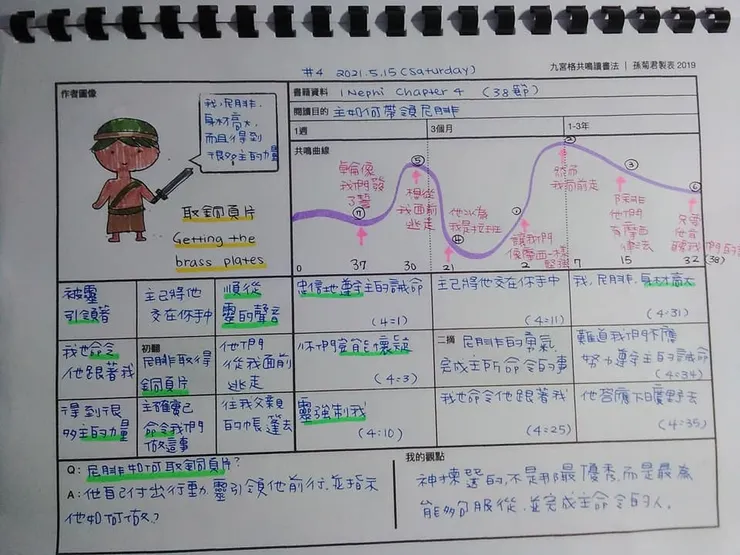 #4 2021.5.15 (Saturday)
九宮格共鳴讀書法｜孫菊君製表 2019
作者圖像
書籍資料 1 Nephi Chapter 4 (38節)
閱讀目的 主如何帶領尼腓
1週
3個月
1-3年
共鳴曲線
我,尼腓,
身材高大,
而且得到
很多主的力量
取銅頁片
Getting the
brass plates
我們發
了誓
想從
我面前
逃走
他以為
我是拉班
讓我們
像摩西一樣
堅強
我前走
他們
有摩西
律法
⑦
⑤
④
①
②
③
⑥
0
37
30
21
2
7
15
32
(38)
被靈
引領著
主已將他
交在你手中
順從
靈的聲音
忠信地遵守主的誡命
(4:1)
主已將他交在你手中
(4:11)
我,尼腓,身材高大
(4:31)
我也命令
他跟著我
初翻
尼腓取得
銅頁片
他們
從我面前
逃走
你們豈能懷疑
(4:3)
二摘 尼腓的勇氣
完成主所命令的事
難道我們不應
努力遵守主的誡命
(4:34)
得到很
多主的力量
主確實已
命令我們
做這事
往我父親
的帳篷去
靈強制我
(4:10)
我也命令他跟著我
(4:25)
他答應下曠野去
(4:35)
Q: 尼腓如何取銅頁片?
A: 他自己付出行動,靈引領他前行,並指示
他如何做?
我的觀點
神揀選的,不是那最優秀,而是最為
能夠服從,並完成主命令的人.